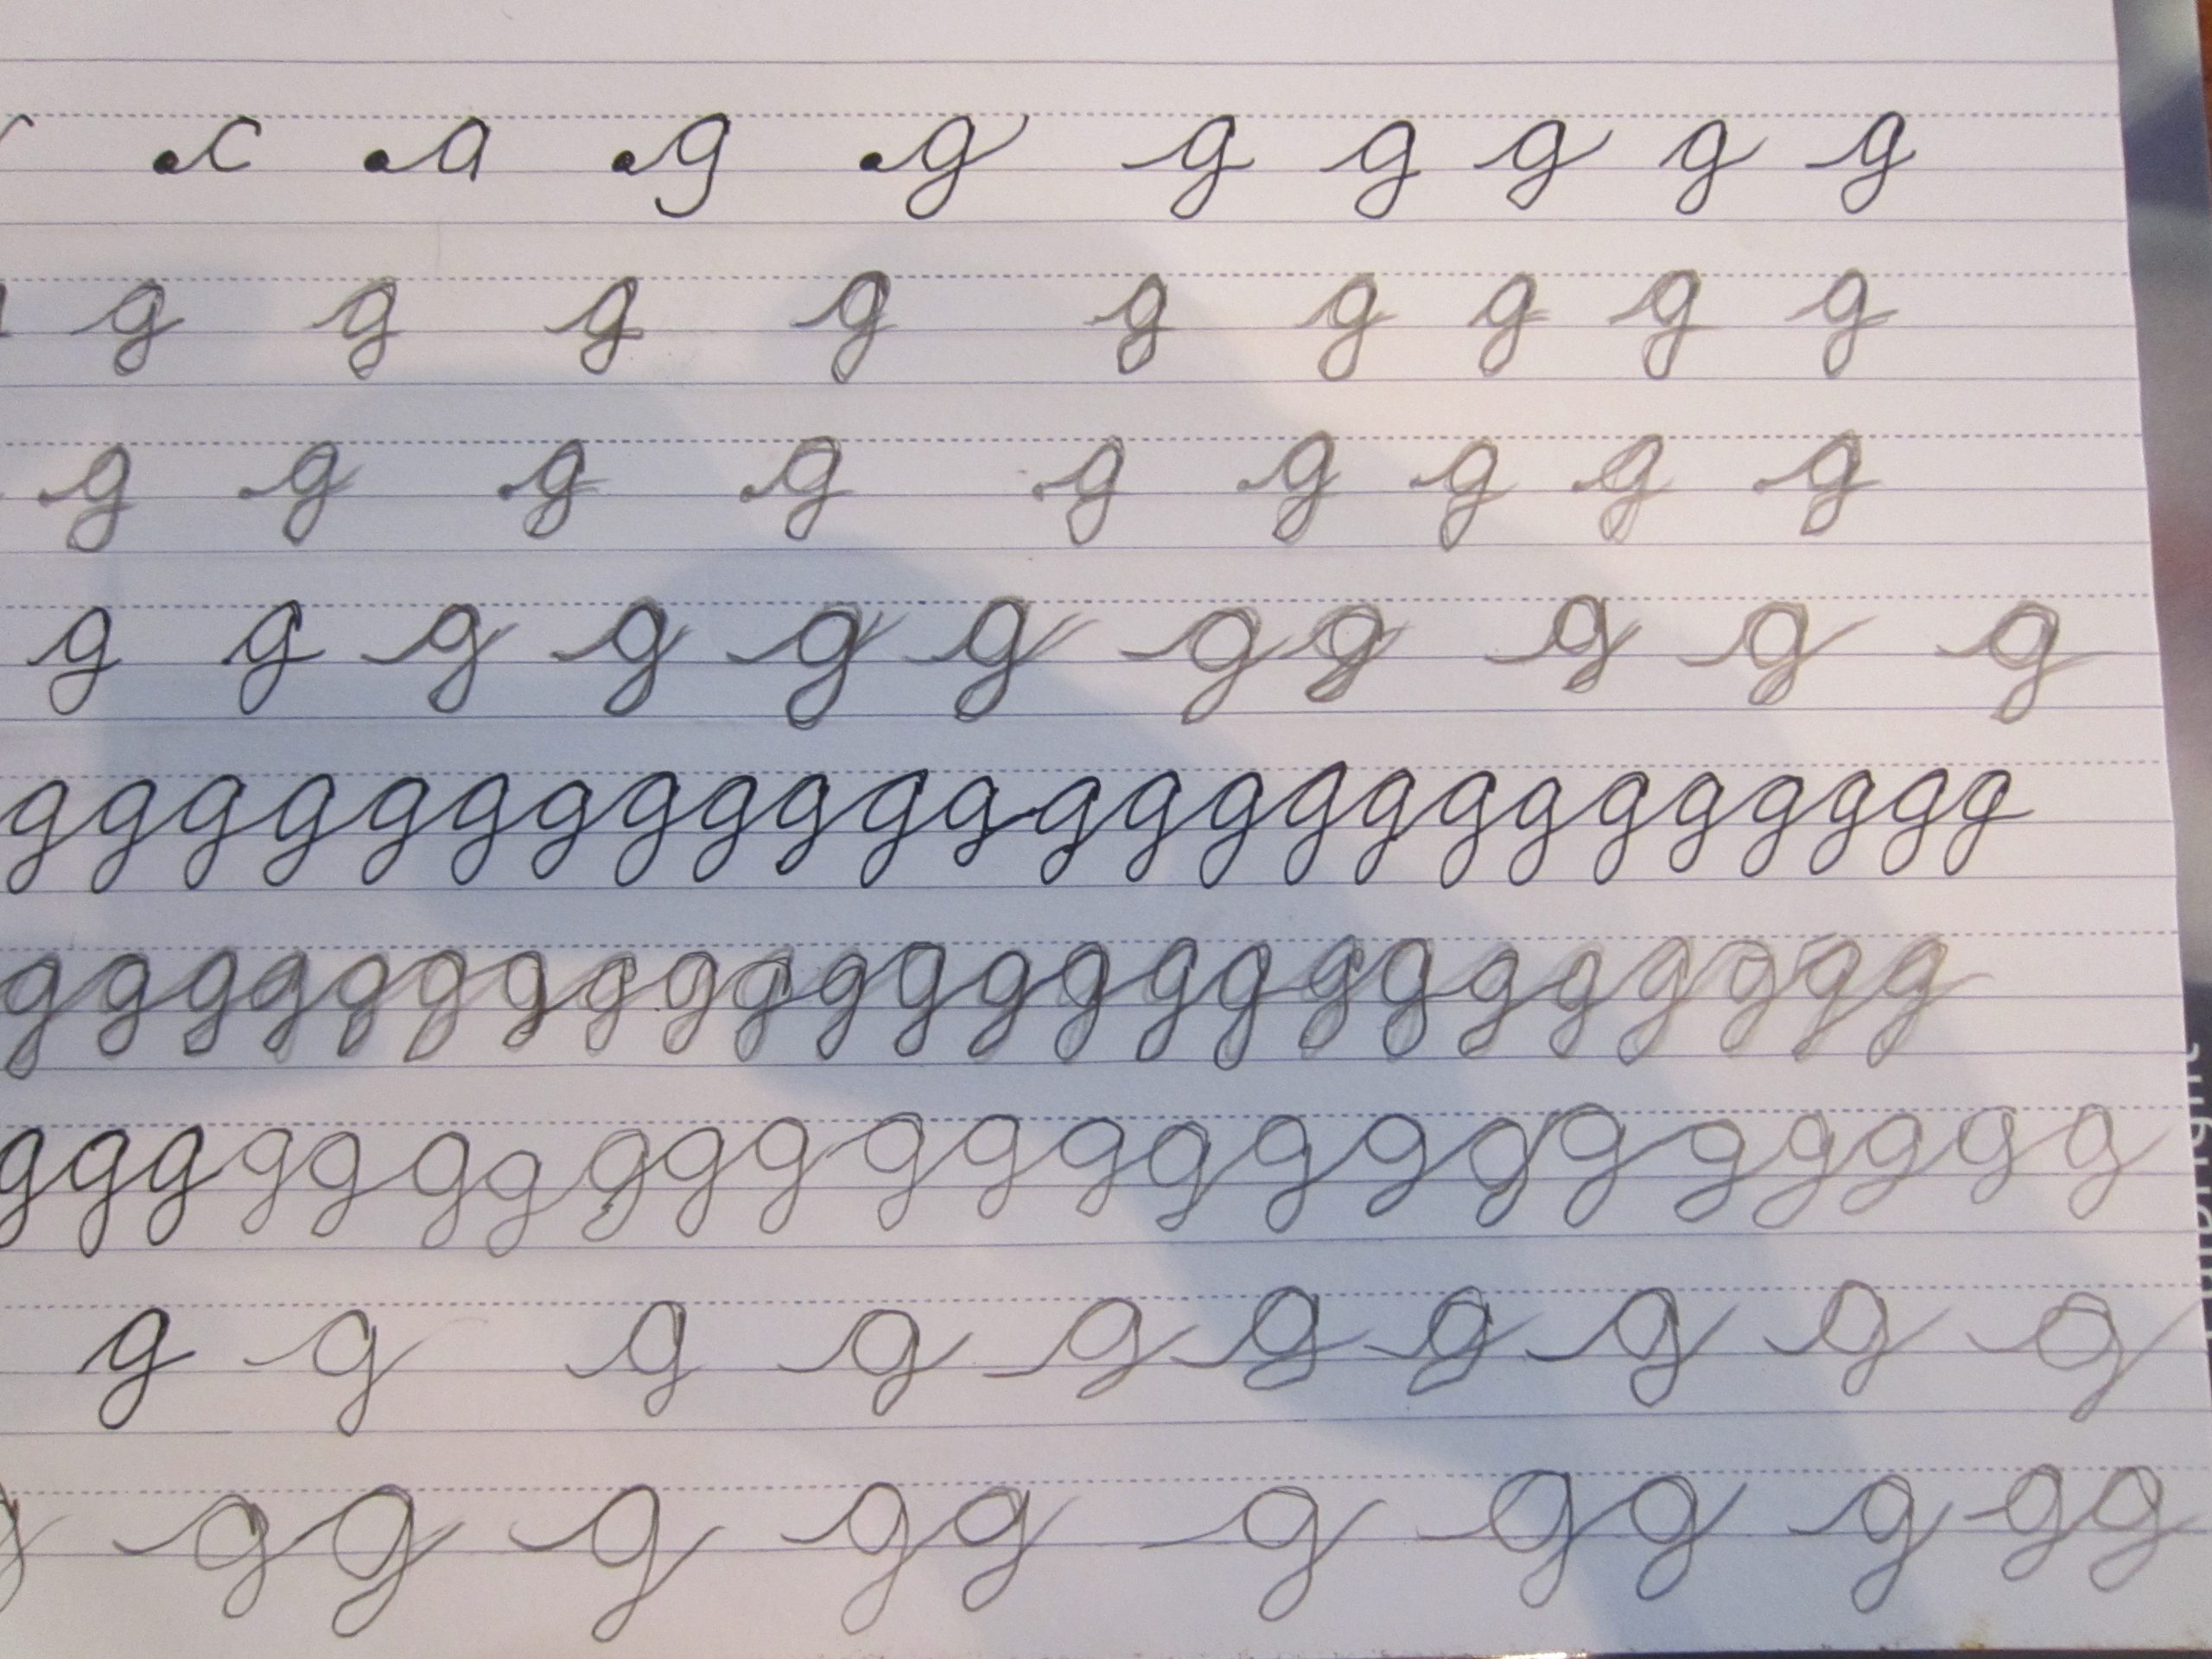 c a g g g g g g g
g g g g g g g g g
g g g g g g g g g
g g g g g g g g g g g
g g g g g g g g g g g g g g g g g g g g g g g g g
g g g g g g g g g g g g g g g g g g g g g g g g
g g g g g g g g g g g g g g g g g g g g g g g g
g g g g g g g g g g
g g g g g g g g g g g